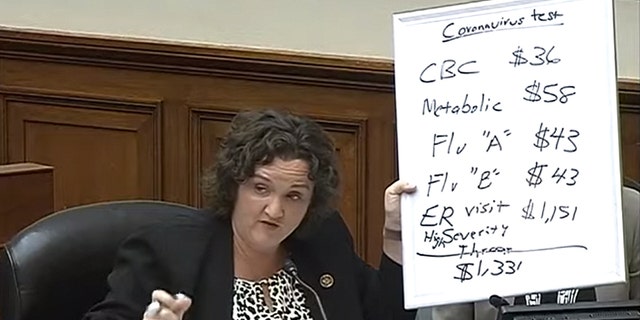 Coronavirus test
CBC $36
Metabolic $58
Flu "A" $43
Flu "B" $43
ER visit $1,151
High Severity
Threat
$1,331